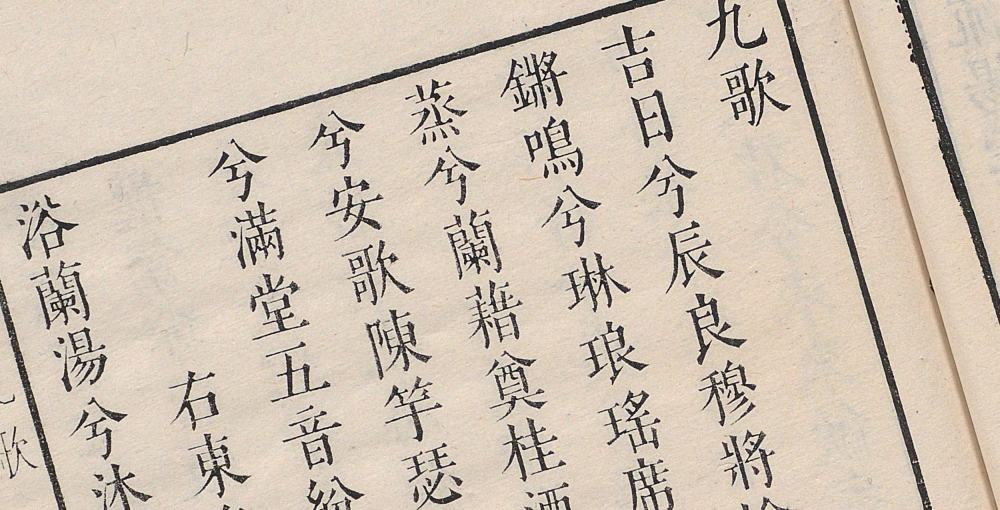 九歌
吉日兮辰良穆將
鏘鳴兮琳琅瑤席
蒸兮蘭藉奠桂酒
兮安歌陳竽瑟
兮滿堂五音紛
右東
浴蘭湯兮沐
歌